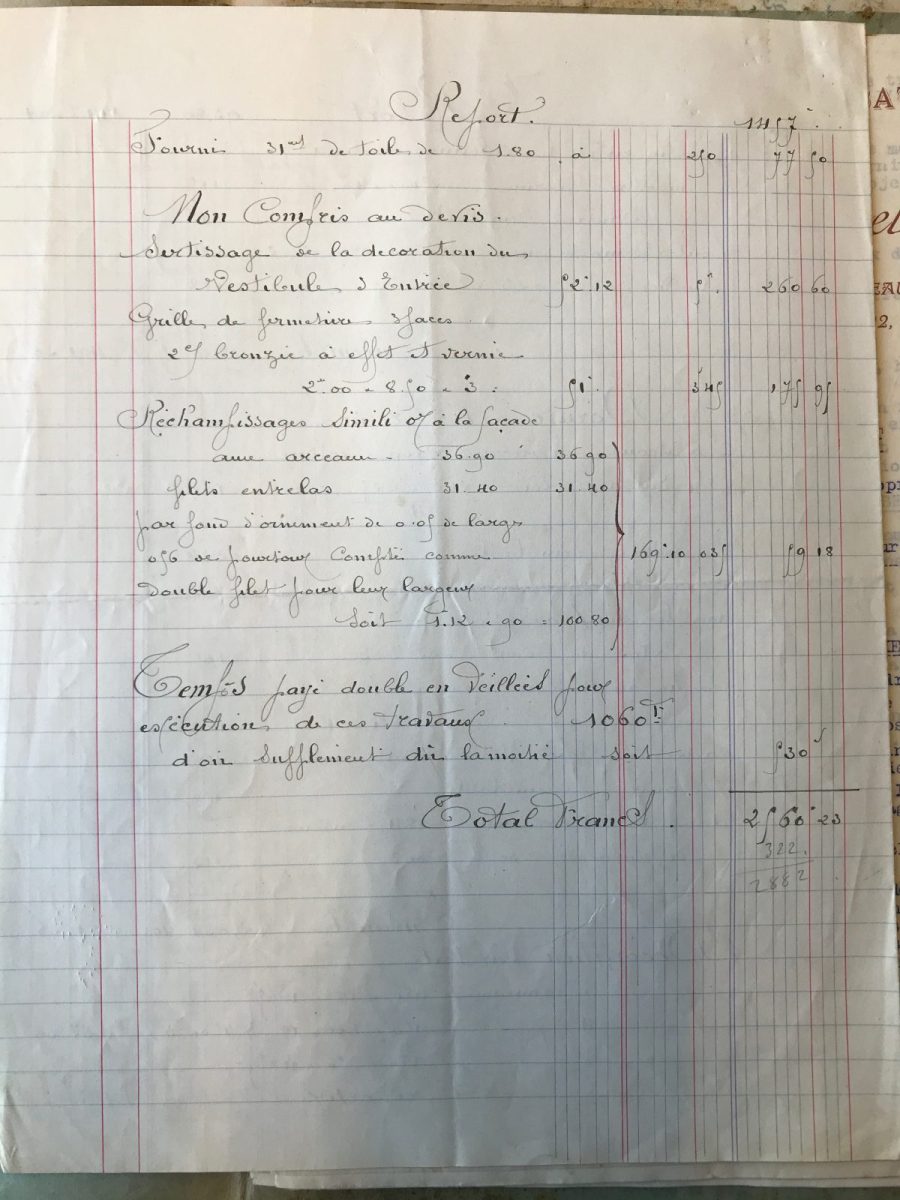 Report. 1457
Fourni 31mt de toile de 1.80 à 2 50 77 50
Non Compris au devis.
Sertissage de la decoration du
Vestibule d'Entrée 52.12 5 260 60
Grille de fermeture 3 faces
bronzée à effet et vernie
2.00 x 8.50 x 3 = 51 3 45 175 95
Réchampissages Simili or à la façade
arceaux 36.90 36 90
filets entrelas 31.40 31.40
par fond d'ornement de 0.05 de large
056 de pourtour Compté comme
double filet pour leur largeur 169.10 035 59 18
soit 1.12 x 90 = 100.80
Temps payé double en Veillées pour
exécution de ces travaux 1060 F
d'où supplement dû la moitié soit 530
Total Francs. 2560 23
322.
2882.